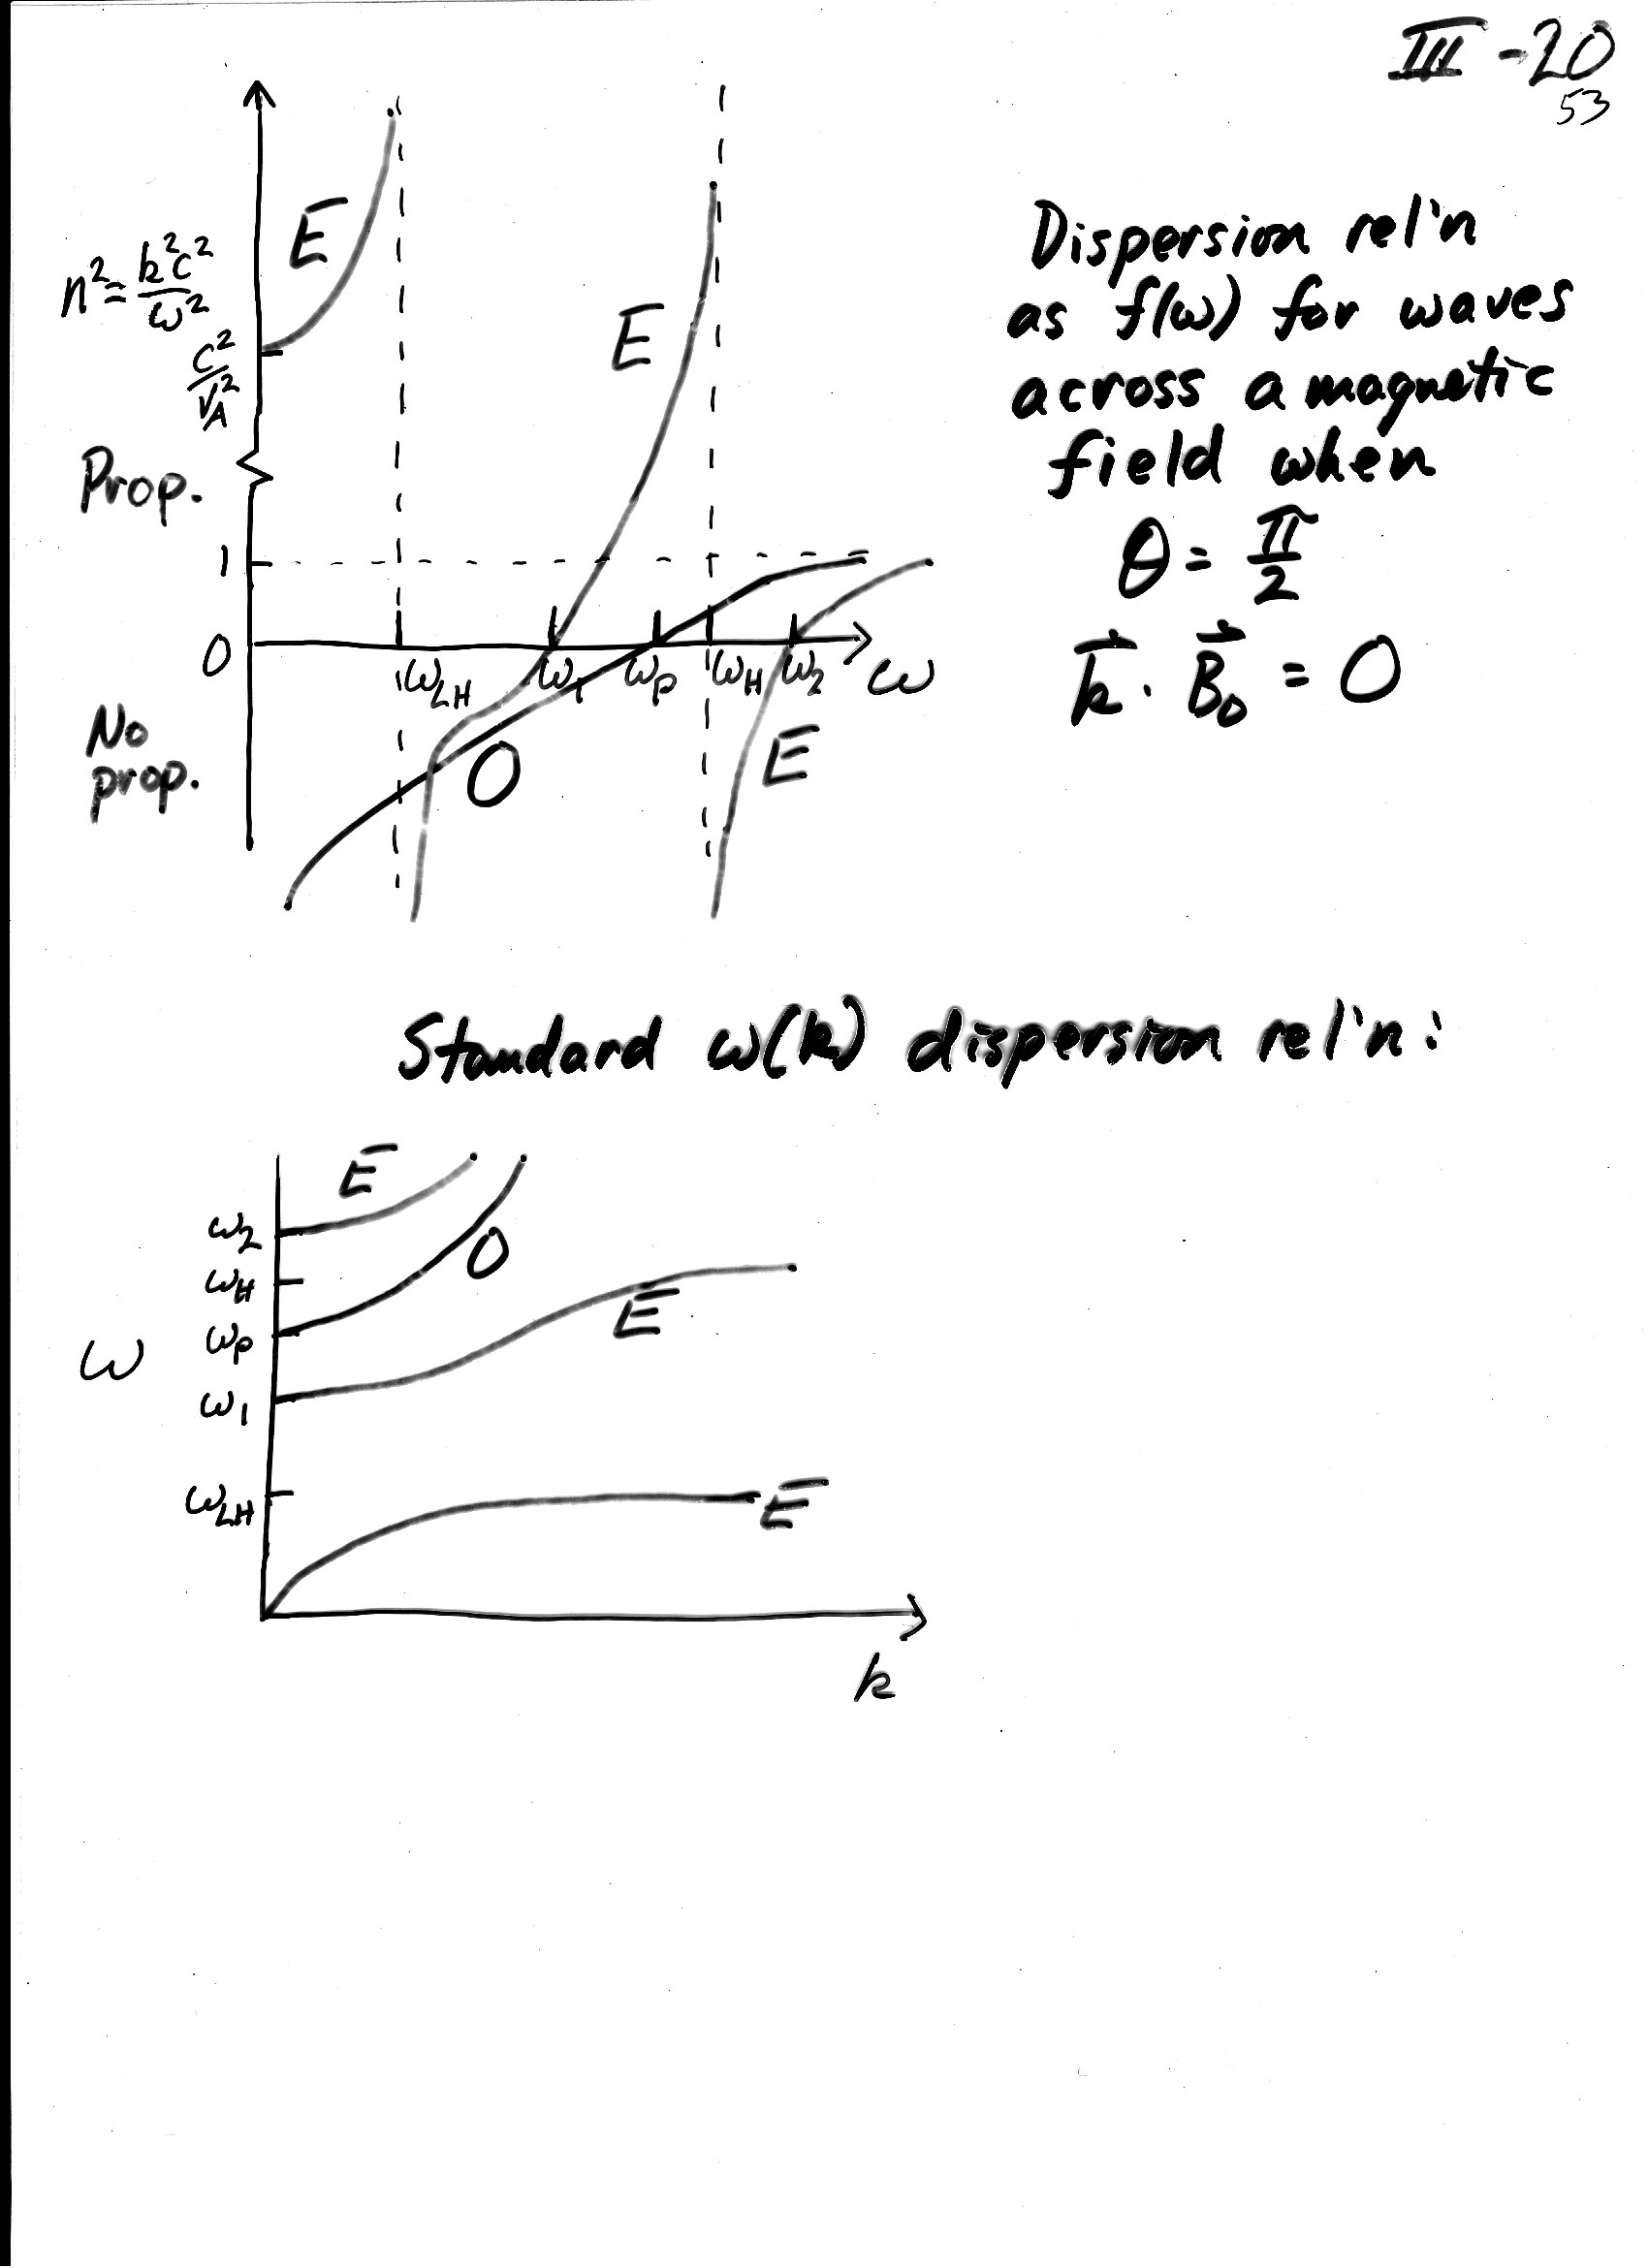 III - 20
53
E
n² = k²c²/ω²
c²/V_A²
E
Prop.
1
0
ω_LH ω₁ ω_p ω_H ω₂ ω
No
prop.
O
E
Dispersion rel'n
as f(ω) for waves
across a magnetic
field when
θ = π/2
k⃗ · B⃗₀ = 0
Standard ω(k) dispersion rel'n:
E
ω₂
O
ω_H
E
ω_p
ω
ω₁
ω_LH
E
k